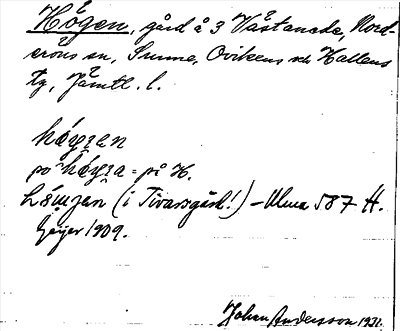 Högen, gård å 3 Västanede, Nord-
eröns sn, Sunne, Ovikens och Hallens
tg, Jämtl. l.
högen
på höga = på H.
(i Tivarsgård!) – Ulma 587 H.
Geijer 1909.
Johan Andersson 1931.